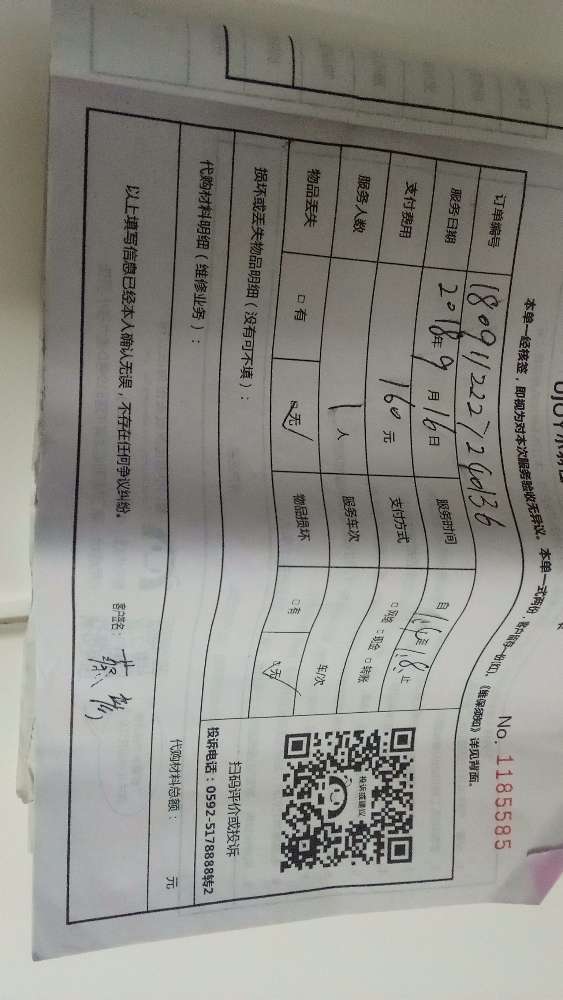 No. 1185585
本单一经核签，即视为对本次服务验收无异议。本单一式两份，客户留存一份
《维保须知》详见背面。
订单编号 180911222726d36
服务日期 2018年9月16日 服务时间 自14至18止
支付费用 160元 支付方式 □现金 □转账
服务人数 1人 服务车次 车次
物品丢失 □有 □无 物品损坏 □有 □无
损坏或丢失物品明细（没有可不填）：
投诉或建议
扫码评价或投诉
投诉电话：0592-5178888转2
代购材料明细（维修业务）： 代购材料总额： 元
以上填写信息已经本人确认无误，不存在任何争议纠纷。 客户签名：